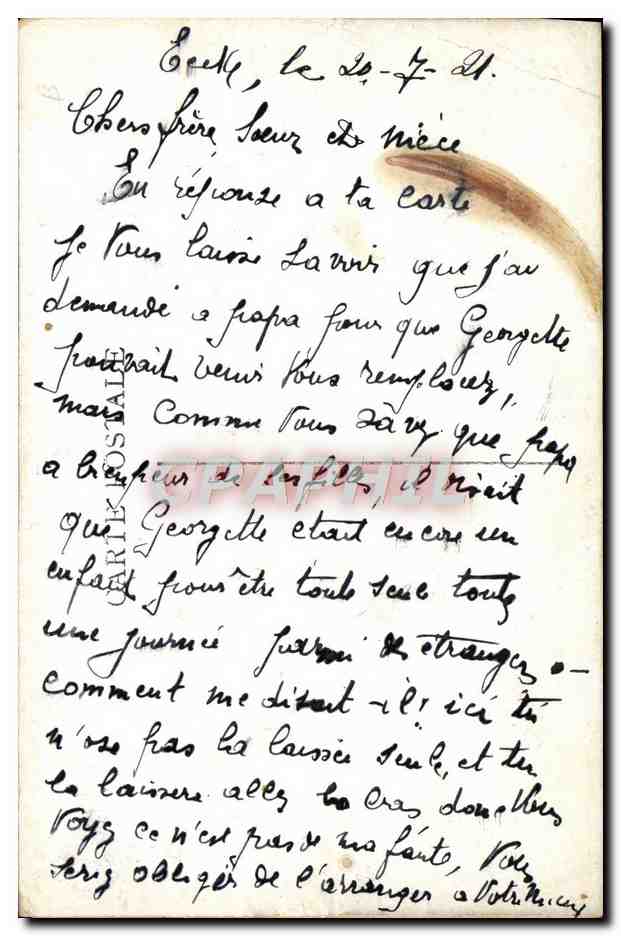 le 20-7-21.
Chers frère, Soeur et nièce
En réponse a ta carte
Je Vous laisse Savoir que j'ai
demandé a papa pour que Georgette
pouvait venir Vous remplacer,
mais Comme Vous Savez que papa
a bien peur de ses filles, il disait
que Georgette etait encore un
enfant pour être toute seule toute
une journée parmi des étrangers
comment me disait-il! ici tu
n'ose pas la laisser seule, et tu
la laissera aller la bas donc Vous
Voyez ce n'est pas de ma faute, Vous
serez obligés de l'arranger a Votre mieux
CARTE POSTALE
CPAPHIL